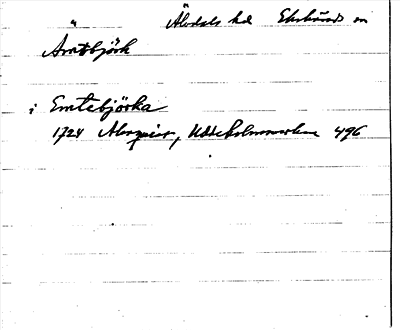 Älvdals hd Ekshärads sn
Ämtbjörk
i Emtebjörka
1724 Alsqvier, Uddeholmsverken 496